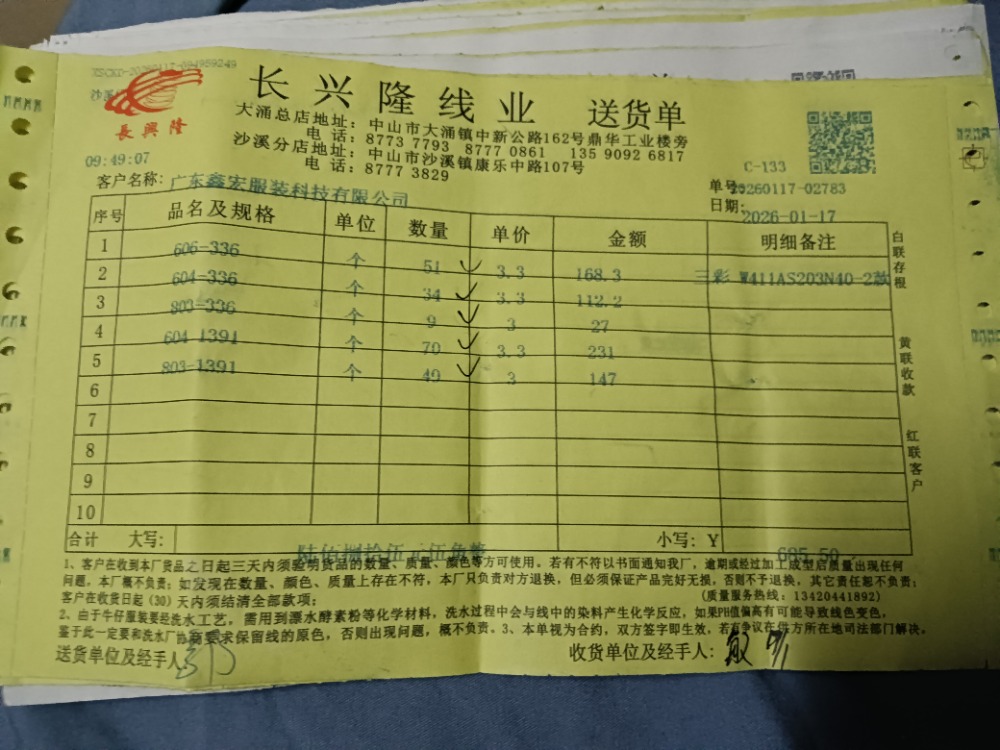 XSCKD-20260117-094959249
長興隆
长兴隆线业 送货单
大涌总店地址：中山市大涌镇中新公路162号鼎华工业楼旁
电话：8773 7793 8777 0861 135 9092 6817
沙溪分店地址：中山市沙溪镇康乐中路107号
电话：8777 3829
09:49:07
C-133
客户名称：广东鑫宏服装科技有限公司
单号：20260117-02783
日期：2026-01-17
序号 品名及规格 单位 数量 单价 金额 明细备注
1 606-336 个 51 3.3 168.3 三彩 W411AS203N40-2款
2 604-336 个 34 3.3 112.2
3 803-336 个 9 3 27
4 604-1391 个 70 3.3 231
5 803-1391 个 49 3 147
6
7
8
9
10
合计 大写：陆佰捌拾伍元伍角整 小写：Y 685.50
白联存根
黄联收款
红联客户
1、客户在收到本厂货品之日起三天内须验明货品的数量、质量、颜色等方可使用，若有不符以书面通知我厂，逾期或经过加工成型后质量出现任何
问题，本厂概不负责；如发现在数量、颜色、质量上存在不符，本厂只负责对方退换，但必须保证产品完好无损，否则不予退换，其它责任恕不负责；
客户在收货日起（30）天内须结清全部款项； （质量服务热线：13420441892）
2、由于牛仔服装要经洗水工艺，需用到漂水酵素粉等化学材料，洗水过程中会与线中的染料产生化学反应，如果PH值偏高有可能导致线色变色，
鉴于此一定要和洗水厂协商要求保留线的原色，否则出现问题，概不负责。3、本单视为合约，双方签字即生效，若有争议在供方所在地司法部门解决。
送货单位及经手人：
收货单位及经手人：敏